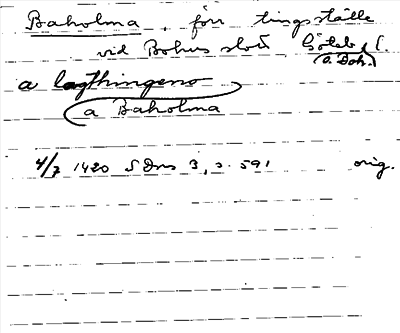 Baholma, förr tingsställe
vid Bohus slott Göteb. l.
(o. Boh.)
a lagthingeno
a Baholma
4/7 1420 SDns 3, s. 591 orig.